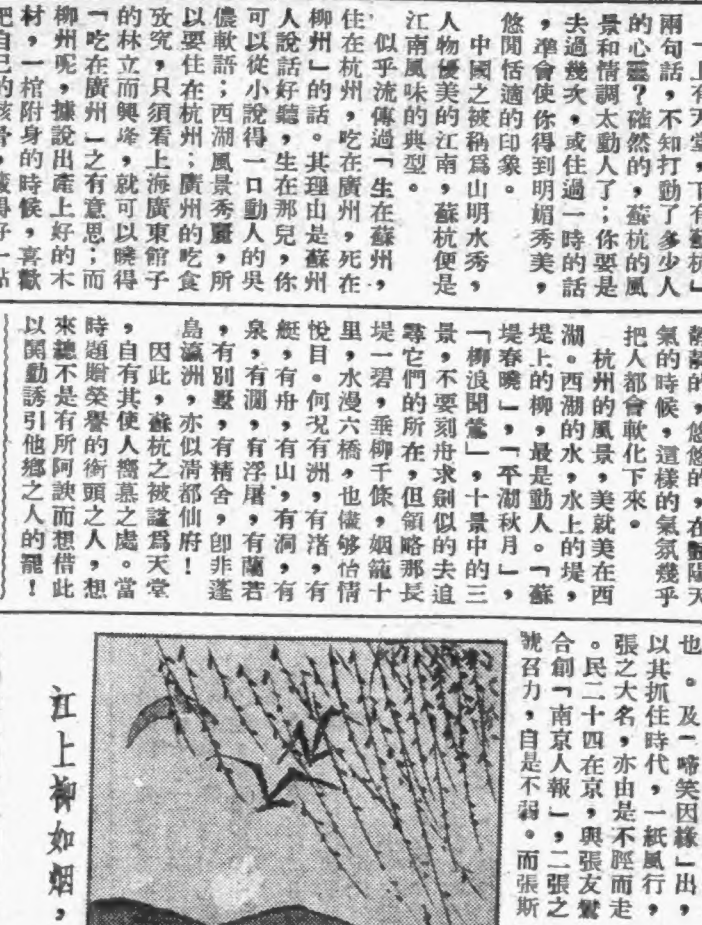 「上有天堂，下有蘇杭」
兩句話，不知打動了多少人
的心靈？確然的，蘇杭的風
景和情調太動人了；你要是
去過幾次，或住過一時的話
，準會使你得到明媚秀美，
悠閒恬適的印象。
中國之被稱爲山明水秀，
人物優美的江南，蘇杭便是
江南風味的典型。
似乎流傳過「生在蘇州，
住在杭州，吃在廣州，死在
柳州」的話。其理由是蘇州
人說話好聽，生在那兒，你
可以從小說得一口動人的吳
儂軟語；西湖風景秀麗，所
以要住在杭州；廣州的吃食
攷究，只須看上海廣東館子
的林立而興隆，就可以曉得
「吃在廣州」之有意思；而
柳州呢，據說出產上好的木
材，一棺附身的時候，喜歡
把自己的骸骨，獲得好一點
靜靜的，悠悠的，在豔陽天
氣的時候，這樣的氣氛幾乎
把人都會軟化下來。
杭州的風景，美就美在西
湖。西湖的水，水上的堤，
堤上的柳，最是動人。「蘇
堤春曉」，「平湖秋月」，
「柳浪聞鶯」，十景中的三
景，不要刻舟求劍似的去追
尋它們的所在，但領略那長
堤一碧，垂柳千條，烟籠十
里，水漫六橋，也儘够怡情
悅目。何况有洲，有渚，有
艇，有舟，有山，有洞，有
泉，有澗，有浮屠，有蘭若
，有別墅，有精舍，卽非蓬
島瀛洲，亦似淸都仙府！
因此，蘇杭之被諡爲天堂
，自有其使人嚮慕之處。當
時題贈榮譽的銜頭之人，想
來總不是有所阿諛而想借此
以閧動誘引他鄉之人的罷！
也。及「啼笑因緣」出，
以其抓住時代，一紙風行，
張之大名，亦由是不脛而走
。民二十四在京，與張友鸞
合創「南京人報」，二張之
號召力，自是不弱。而張斯
江上柳如烟，